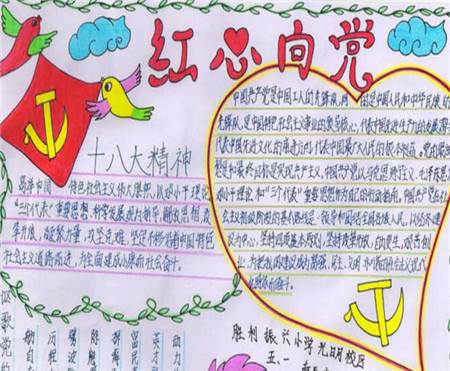 红心向党
十八大精神
高举中国特色社会主义伟大旗帜,以邓小平理论
"三个代表"重要思想、科学发展观为指导,解放思想,改
革开放,凝聚力量,攻坚克难,坚定不移沿着中国特色
社会主义道路前进,为全面建成小康而社会奋斗。
中国共产党是中国工人的先锋队,同时是中国人民和中华民族的
先锋队,是中国特色社会主义事业的领导核心,代表中国先进生产力的发展要
代表中国先进文化的前进方向,代表中国最广大人民的根本利益。党的最高理
想和最终目标是实现共产主义。中国共产党以马克思列宁主义、毛泽东思
邓小平理论和"三个代表"重要思想作为自己的行动指南。中国共产党在社
会主义初级阶段的基本路线是:领导和团结全国各族人民,以经济建
设为中心,坚持四项基本原则,坚持改革开放,自力更生,艰苦创
业,为把我国建设成为富强、民主、文明、和谐的社会主义现代
化国家而奋斗。
讴歌党的
历程
富民
英才
动力
胜利振兴小学光明校区
五、一